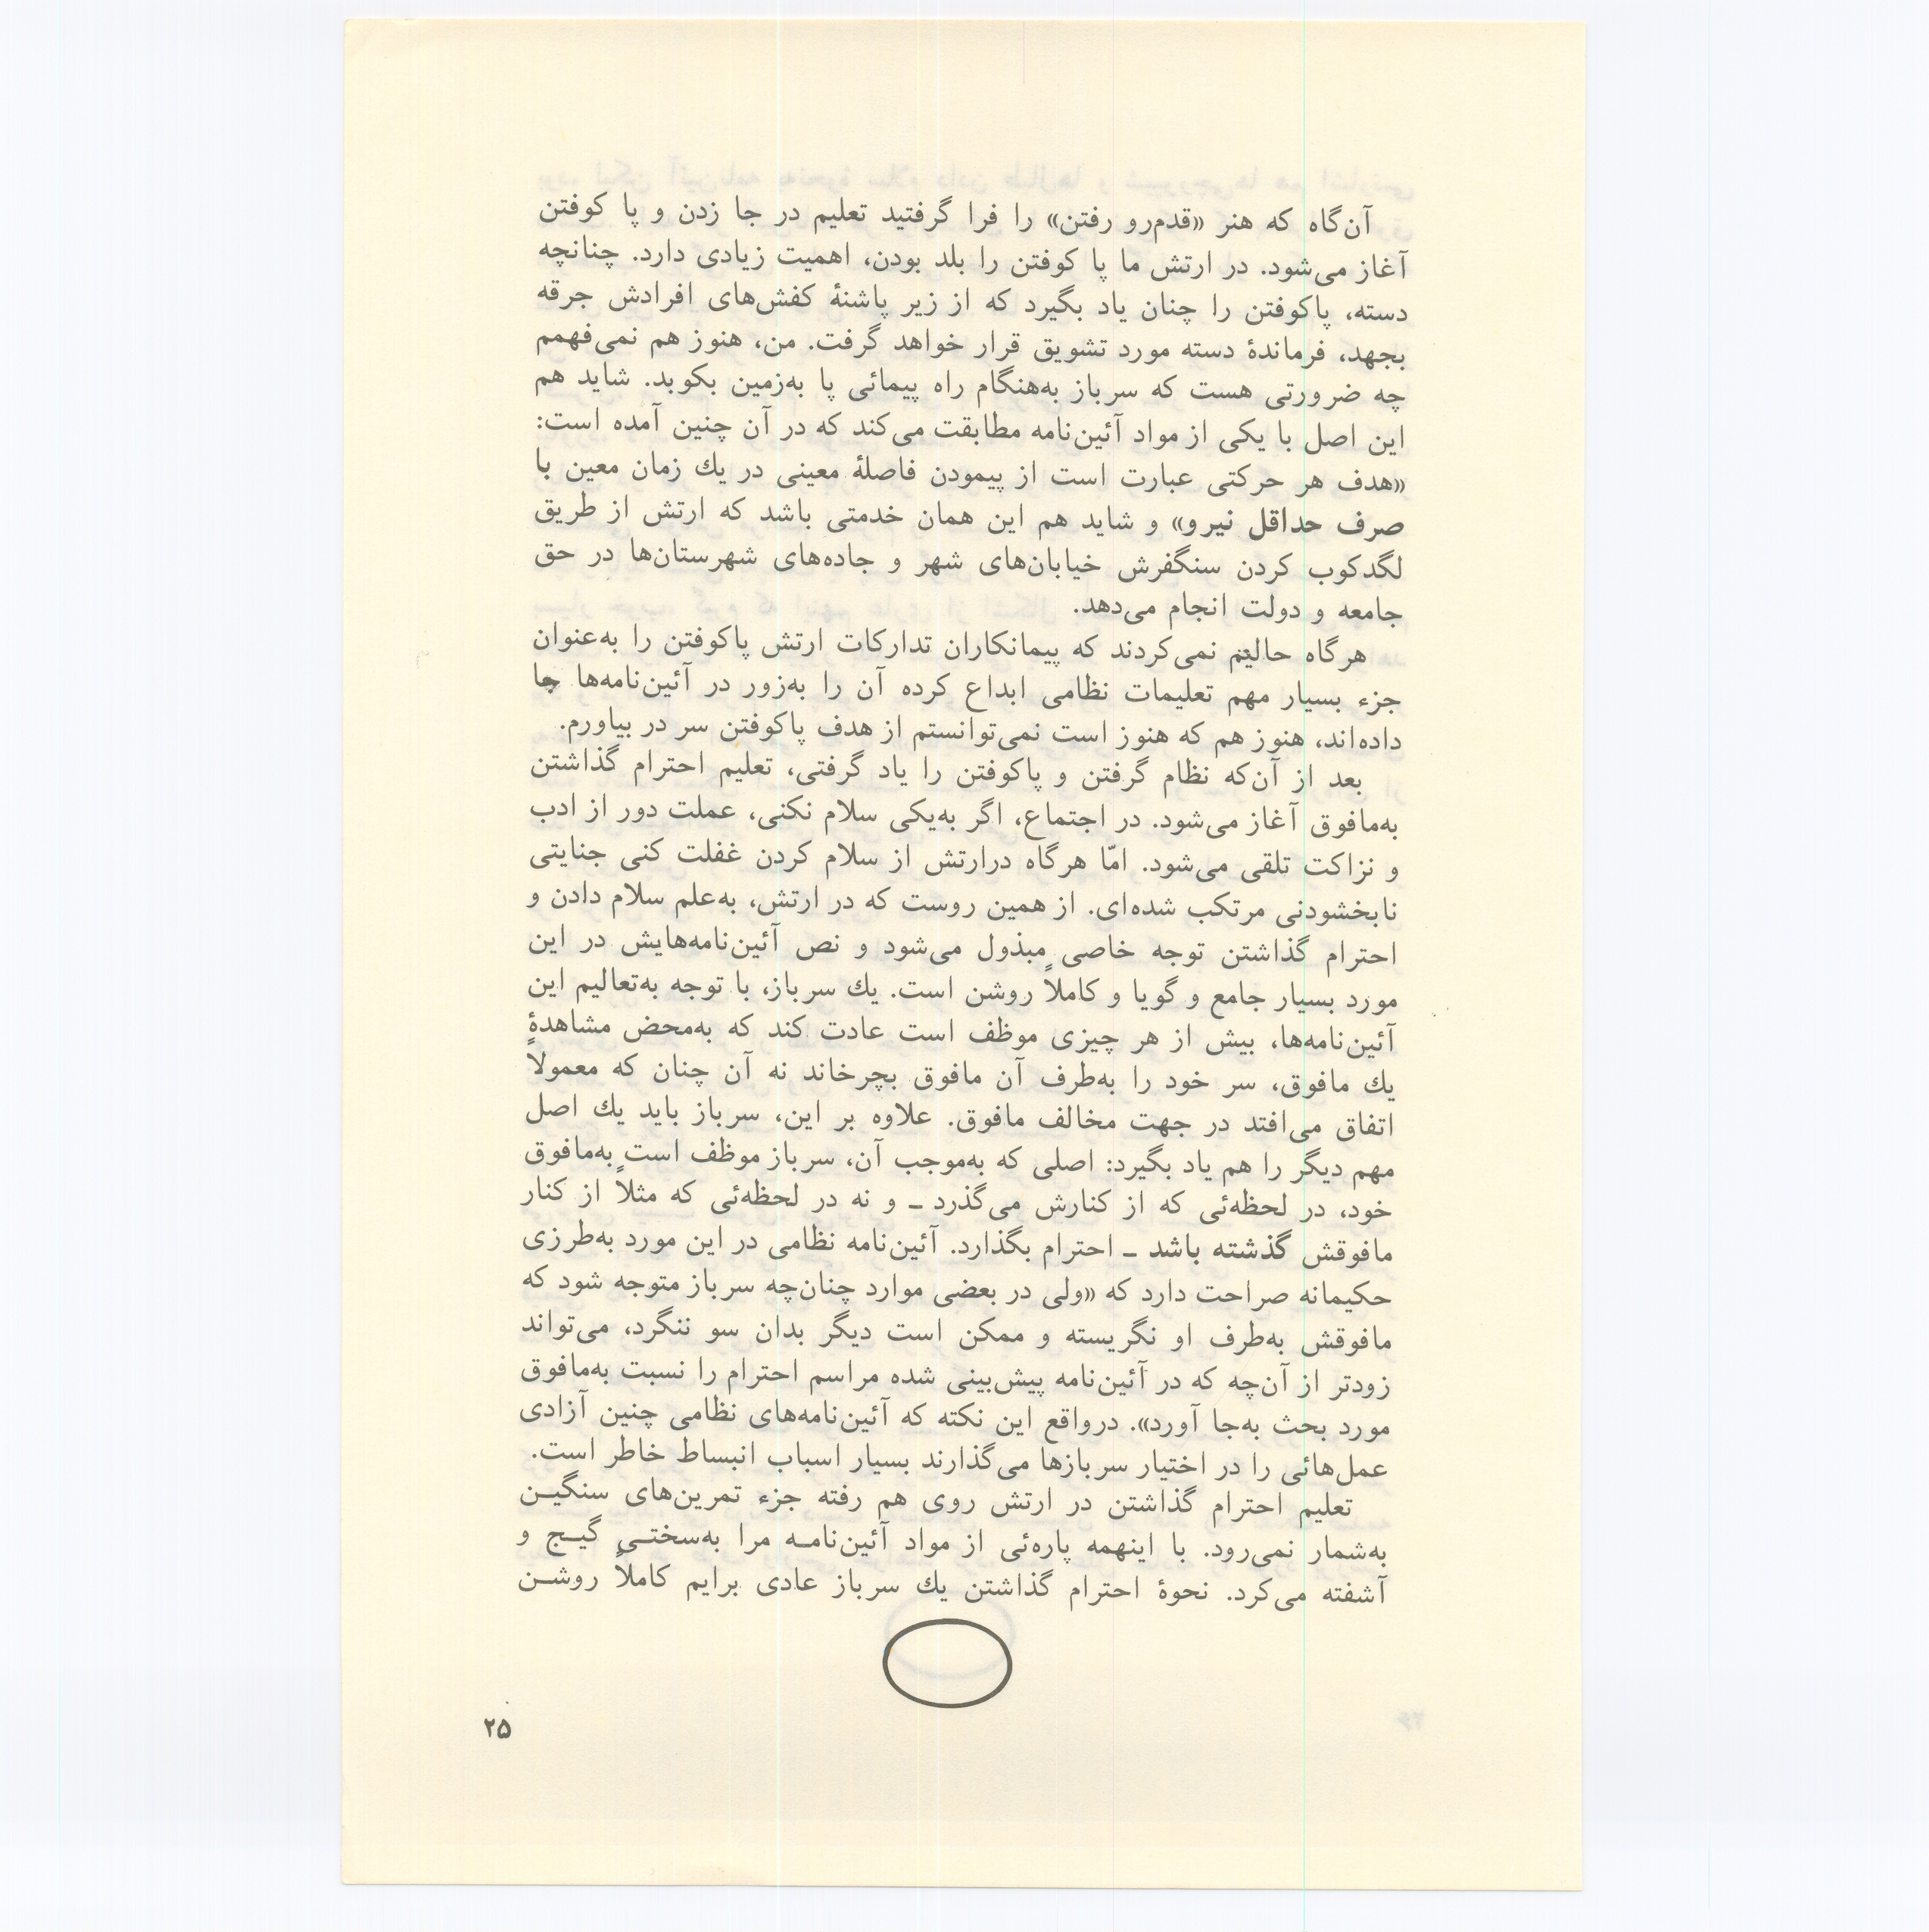 آن‌گاه که هنر «قدم‌رو رفتن» را فرا گرفتید تعلیم در جا زدن و پا کوفتن
آغاز می‌شود. در ارتش ما پا کوفتن را بلد بودن، اهمیت زیادی دارد. چنانچه
دسته، پاکوفتن را چنان یاد بگیرد که از زیر پاشنهٔ کفش‌های افرادش جرقه
بجهد، فرماندهٔ دسته مورد تشویق قرار خواهد گرفت. من، هنوز هم نمی‌فهمم
چه ضرورتی هست که سرباز به‌هنگام راه پیمائی پا به‌زمین بکوبد. شاید هم
این اصل با یکی از مواد آئین‌نامه مطابقت می‌کند که در آن چنین آمده است:
«هدف هر حرکتی عبارت است از پیمودن فاصلهٔ معینی در یك زمان معین با
صرف حداقل نیرو» و شاید هم این همان خدمتی باشد که ارتش از طریق
لگدکوب کردن سنگفرش خیابان‌های شهر و جاده‌های شهرستان‌ها در حق
جامعه و دولت انجام می‌دهد.
هرگاه حالیم نمی‌کردند که پیمانکاران تدارکات ارتش پاکوفتن را به‌عنوان
جزء بسیار مهم تعلیمات نظامی ابداع کرده آن را به‌زور در آئین‌نامه‌ها جا
داده‌اند، هنوز هم که هنوز است نمی‌توانستم از هدف پاکوفتن سر در بیاورم.
بعد از آن‌که نظام گرفتن و پاکوفتن را یاد گرفتی، تعلیم احترام گذاشتن
به‌مافوق آغاز می‌شود. در اجتماع، اگر به‌یکی سلام نکنی، عملت دور از ادب
و نزاکت تلقی می‌شود. امّا هرگاه درارتش از سلام کردن غفلت کنی جنایتی
نابخشودنی مرتکب شده‌ای. از همین روست که در ارتش، به‌علم سلام دادن و
احترام گذاشتن توجه خاصی مبذول می‌شود و نص آئین‌نامه‌هایش در این
مورد بسیار جامع و گویا و کاملاً روشن است. یك سرباز، با توجه به‌تعالیم این
آئین‌نامه‌ها، بیش از هر چیزی موظف است عادت کند که به‌محض مشاهدهٔ
یك مافوق، سر خود را به‌طرف آن مافوق بچرخاند نه آن چنان که معمولاً
اتفاق می‌افتد در جهت مخالف مافوق. علاوه بر این، سرباز باید یك اصل
مهم دیگر را هم یاد بگیرد: اصلی که به‌موجب آن، سرباز موظف است به‌مافوق
خود، در لحظه‌ئی که از کنارش می‌گذرد ـ و نه در لحظه‌ئی که مثلاً از کنار
مافوقش گذشته باشد ـ احترام بگذارد. آئین‌نامه نظامی در این مورد به‌طرزی
حکیمانه صراحت دارد که «ولی در بعضی موارد چنان‌چه سرباز متوجه شود که
مافوقش به‌طرف او نگریسته و ممکن است دیگر بدان سو ننگرد، می‌تواند
زودتر از آن‌چه که در آئین‌نامه پیش‌بینی شده مراسم احترام را نسبت به‌مافوق
مورد بحث به‌جا آورد». درواقع این نکته که آئین‌نامه‌های نظامی چنین آزادی
عمل‌هائی را در اختیار سربازها می‌گذارند بسیار اسباب انبساط خاطر است.
تعلیم احترام گذاشتن در ارتش روی هم رفته جزء تمرین‌های سنگیـن
به‌شمار نمی‌رود. با اینهمه پاره‌ئی از مواد آئین‌نامـه مرا به‌سختـی گیـج و
آشفته می‌کرد. نحوهٔ احترام گذاشتن یك سرباز عادی برایم کاملاً روشـن
۲۵